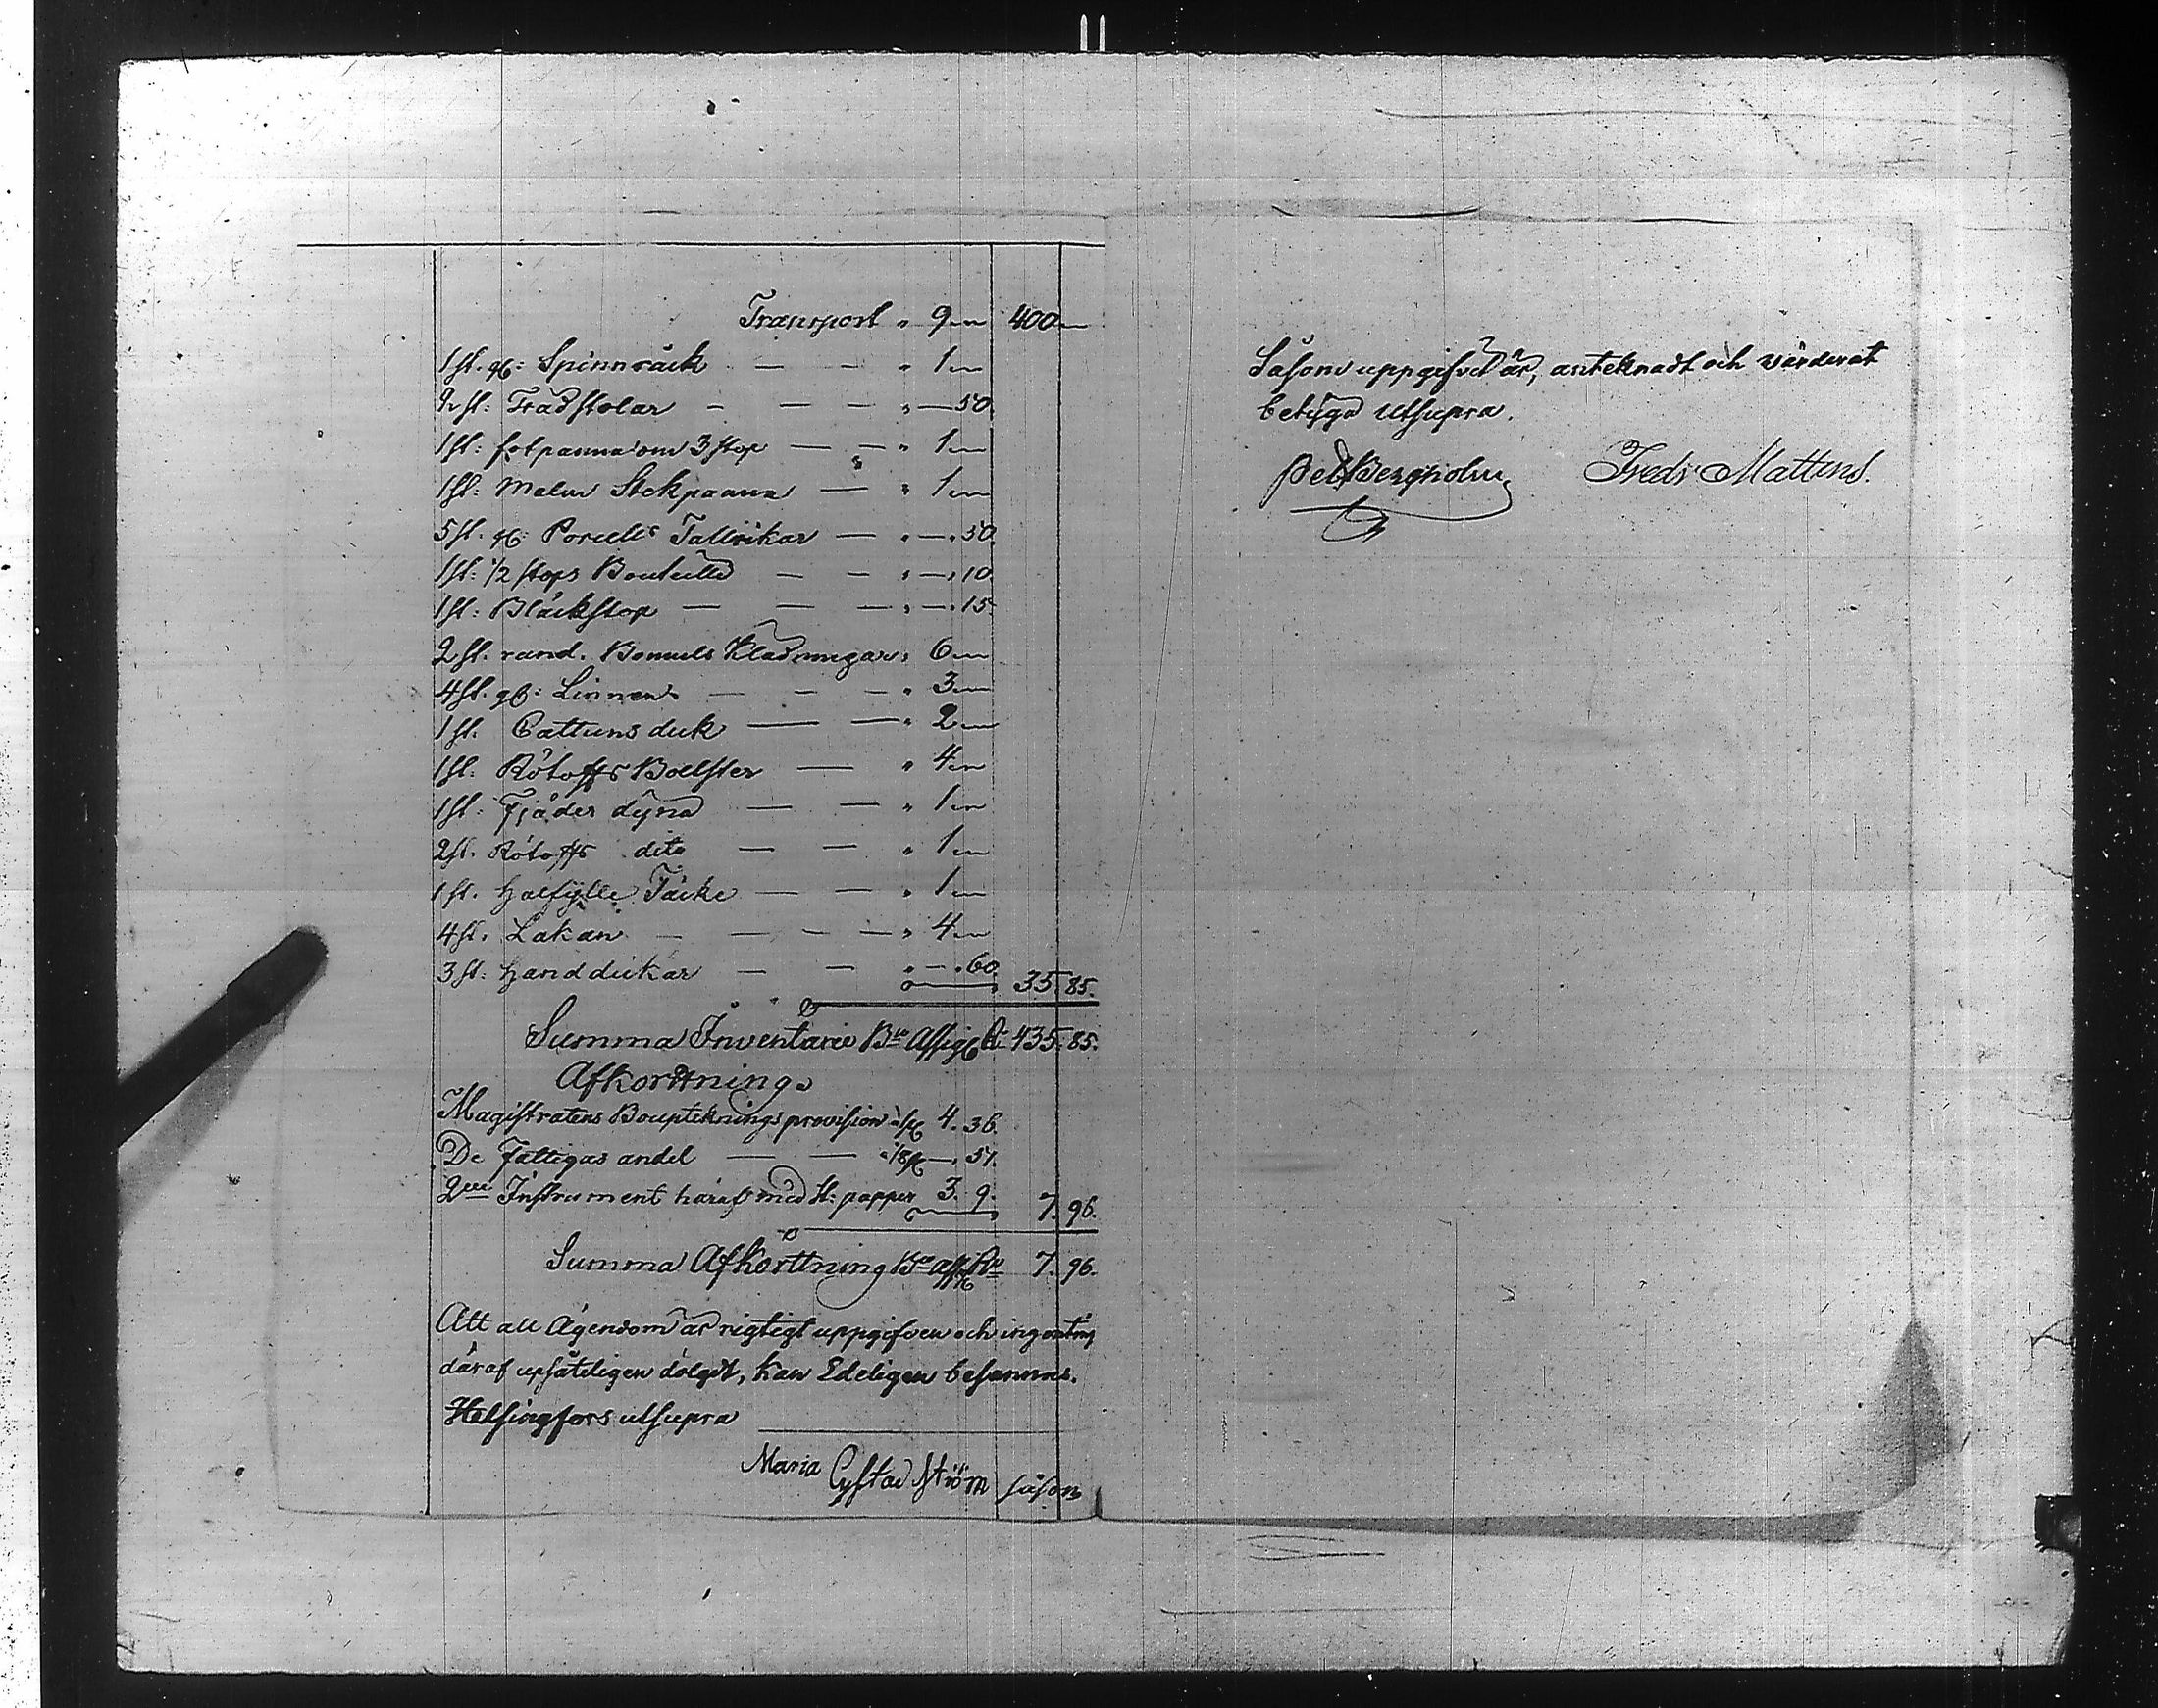 Transport „ 9 „ — 400 „ —
1 st. gl: Spinnråck — — „ 1 „ —
2 st: Trädstolar — — — „ — 50.
1 st: fotpanna om 3 stop — — „ 1 „ —
1 st: Malm Stekpanna — „ 1 „ —
5 st. gl: Porcell: Tallrikar — „ — „ 50.
1 st: 1/2 stops Bouteille — — „ — „ 10.
1 st: Bläckstop — — — „ — „ 15.
2 st. rand. Bomuls Kladningar „ 6 „ —
4 st. gl: Linnen — — — „ 3 „ —
1 st. Cattuns duk — — „ 2 „ —
1 st: Rötoffs Bollster — „ 4 „ —
1 st: Fjäder dyna — — „ 1 „ —
2 st. Rötoffs dito — — „ 1 „ —
1 st. Halfylle Täcke — — „ 1 „ —
4 st. Lakan — — — — „ 4 „ —
3 st: Handdukar — — „ — „ 60. 35. 85.
Summa Inventarie Bco Assig: R. 435. 85.
Afkortning.
Magistratens Bouptekningsprovision 4. 36.
De Fattigas andel — — 1/8 — 51.
2ne Instrument häraf med st: papper 3. 9. 7. 96.
Summa Afkortning Bco Ass: Ro 7. 96.
Att all Ägendom är rigtigt uppgifven och ingenting
däraf upsåteligen dolgdt, kan Edeligen besannas.
Helsingfors utsupra
Maria Gÿstad Ström såsom
Såsom uppgifvet är, anteknadt och värderat
betyga utsupra.
Pet Bergholm Fredr Mattens.